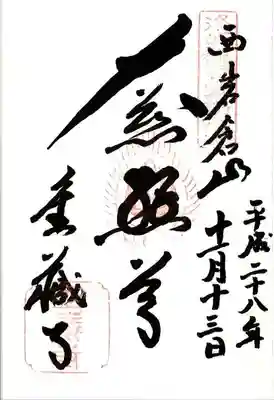 西岩倉山
平成二十八年
十一月十三日
大慈尊
金蔵寺